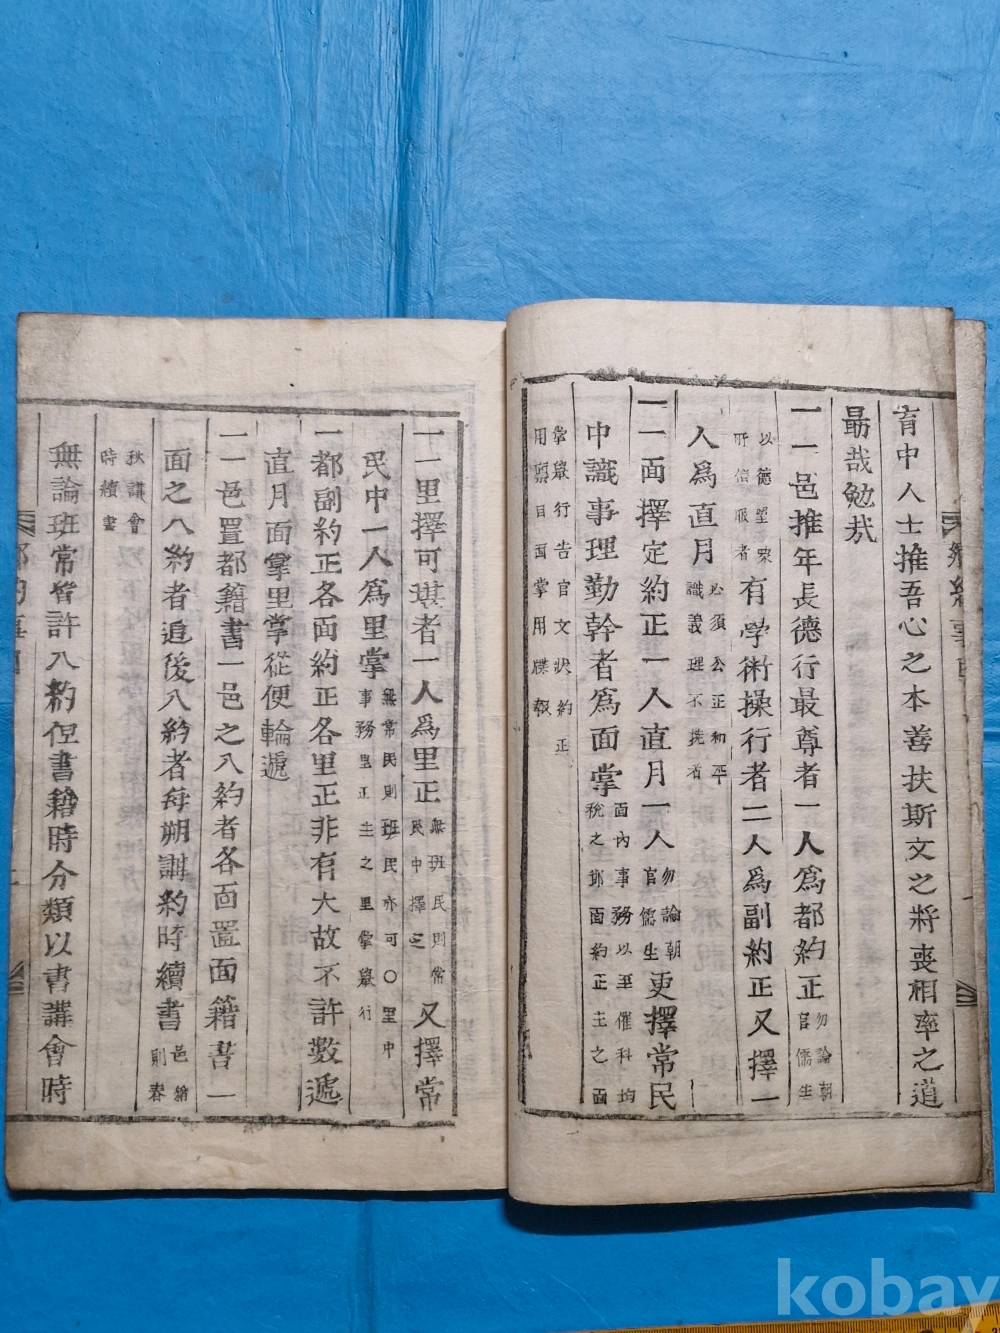 育中人士推吾心之本善扶斯文之將喪相率之道
最哉勉哉
一一邑推年長德行最尊者一人爲都約正勿論朝官儒生
以德望衆所信服者有學術操行者二人爲副約正又擇一
人爲直月必須公正和平識義理不撓者
一一面擇定約正一人直月一人勿論朝官儒生更擇常民
中識事理勤幹者爲面掌面內事務以至催科均稅之擲面約正主之面
掌嚴行告官文狀約正用頭目面掌用牒報
一一里擇可堪者一人爲里正無班民則常民中擇之又擇常
民中一人爲里掌無常民則班民亦可〇里中事務里正主之里掌嚴行
一都副約正各面約正各里正非有大故不許數遞
直月面掌里掌從便輪遞
一一邑置都籍書一邑之入約者各面置面籍書一
面之入約者追後入約者每朔講約時續書邑籍則春
秋講會時續書
無論班常皆許入約但書籍時分類以書講會時
kobay